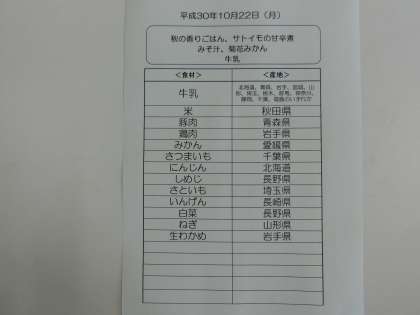 平成30年10月22日（月）
秋の香りごはん、サトイモの甘辛煮
みそ汁、菊花みかん
牛乳
＜食材＞ ＜産地＞
牛乳 北海道、青森、岩手、宮城、山形、埼玉、栃木、群馬、神奈川、静岡、千葉、
米 秋田県
豚肉 青森県
鶏肉 岩手県
みかん 愛媛県
さつまいも 千葉県
にんじん 北海道
しめじ 長野県
さといも 埼玉県
いんげん 長崎県
白菜 長野県
ねぎ 山形県
生わかめ 岩手県